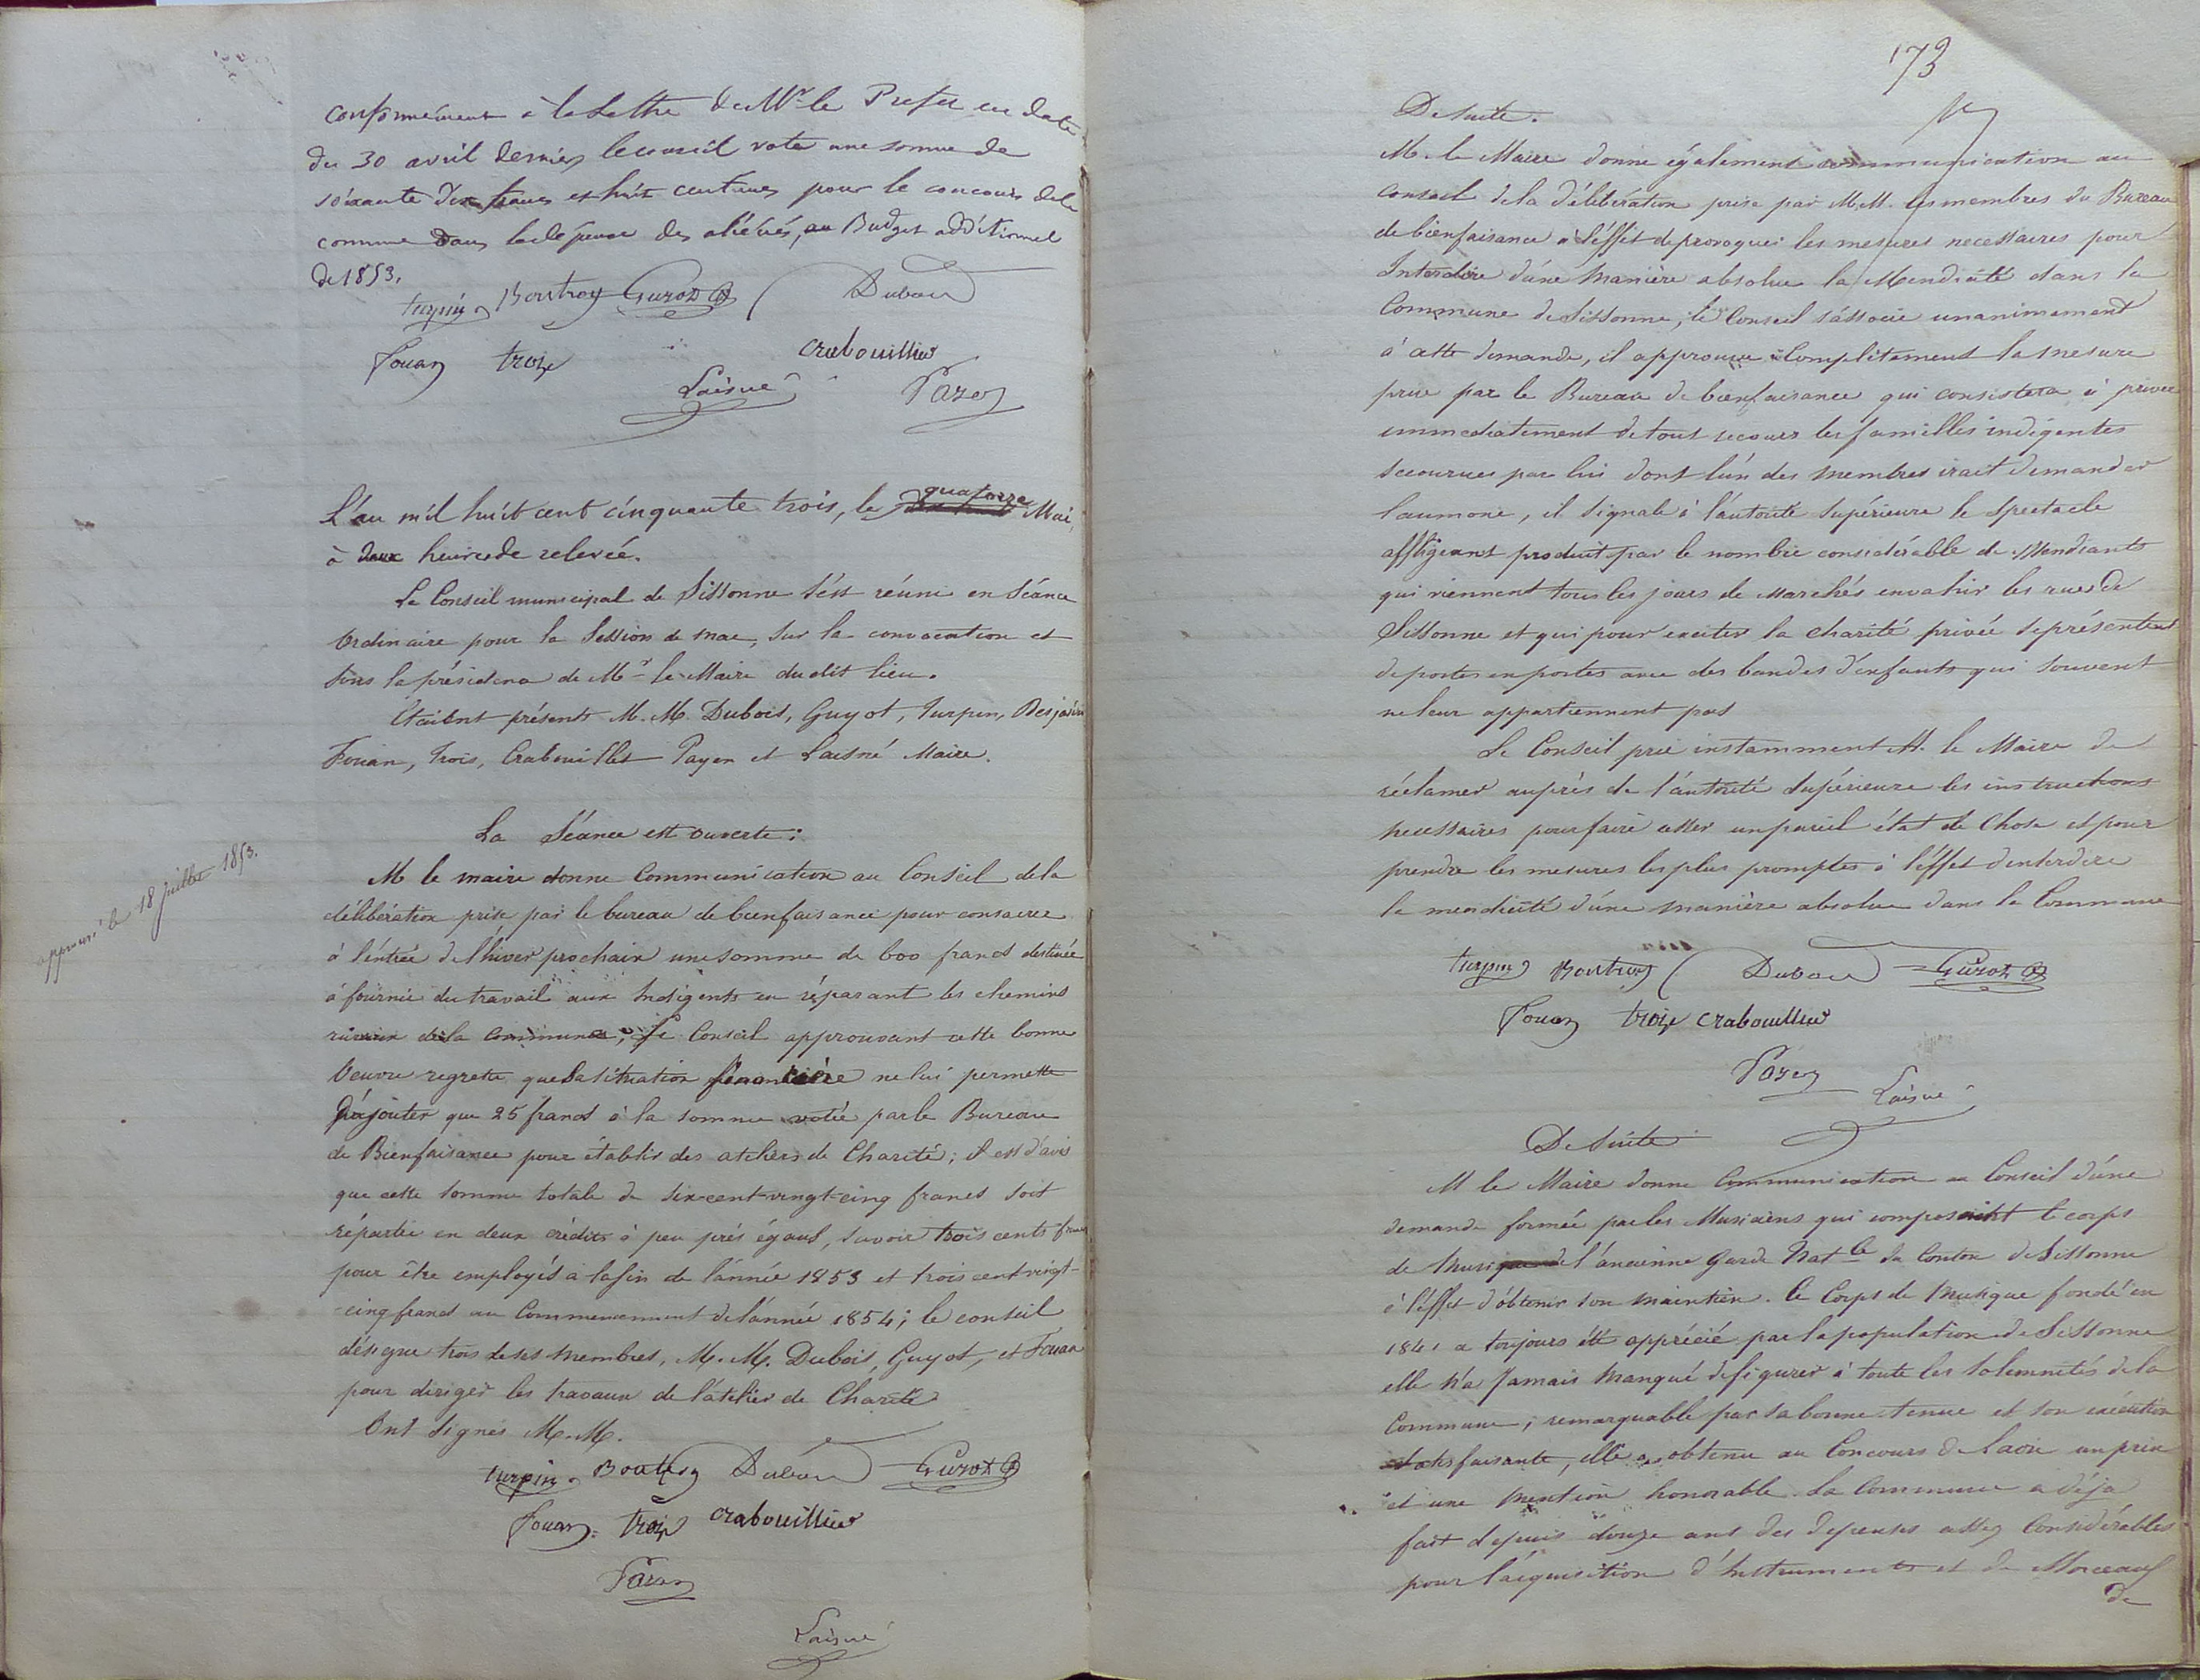 conformément à la Lettre de Mr le Prefet en date
du 30 avril dernier, le conseil vote une somme de
soixante dix francs et huit centimes pour le concours dela
commune dans la dépense des aliénés, au Budget additionnel
de 1853.
turpin Boutroy Guyot Dubois
Fouan troize Crabouillier
Laisné Payen
L'an mil huit cent cinquante trois, le quatorze Mai,
à deux heures de relevée.
Le Conseil municipal de Sissonne s'est réuni en séance
Ordinaire pour la Session de mai, sur la convocation et
sous la présidence de Mr le Maire du dit lieu.
Etaient présents M.M. Dubois, Guyot, Turpin, Desjardin
Fouan, Trois, Crabouillet Payen et Laisné Maire.
La Séance est ouverte :
approuvé le 18 juillet 1853.
M le maire donne Communication au Conseil dela
délibération prise par le bureau de bienfaisance pour consacrer
à l'entrée de l'hiver prochain une somme de 600 francs destinée
à fournir du travail aux Indigents en réparant les chemins
ruraux dela commune, Le Conseil approuvant cette bonne
Oeuvre regrette que sa situation financière ne lui permette
d'ajouter que 25 francs à la somme votée par le Bureau
de Bienfaisance pour établir des ateliers de Charité ; il est d'avis
que cette somme totale de six-cent-vingt-cinq francs soit
répartie en deux crédits à peu près égaux, savoir trois cents francs
pour être employés à la fin de l'année 1853 et trois cent vingt-
cinq francs au Commencement de l'année 1854 ; le conseil
désigne trois de ses membres, M.M. Dubois, Guyot, et Fouan
pour diriger les travaux de l'atelier de Charité
Ont signés M.M.
turpin Boutroy Dubois Guyot
Fouan troize Crabouillier
Payen
Laisné
173
De suite.
M. le Maire donne également communication au
Conseil dela délibération prise par M.M. les membres du Bureau
de bienfaisance à l'éffet de provoquer les mesures necessaires pour
Interdire d'une manière absolue la Mendicité dans la
Commune de Sissonne, le Conseil s'associe unanimement
à cette demande, il approuve complètement la mesure
prise par le Bureau de bienfaisance qui consistera à priver
immediatement de tout secours les familles indigentes
secourues par lui dont l'un des membres irait demander
l'aumone, il signale à l'autorité supérieure le spectacle
affligeant produit par le nombre considérable de Mendiants
qui viennent tous les jours de Marchés envahir les rues de
Sissonne et qui pour exciter la charité privée se présentent
de portes en portes avec des bandes d'enfants qui souvent
ne leur appartiennent pas
Le Conseil prie instamment M. le Maire de
réclamer auprès de l'autorité supérieure les instructions
necessaires pour faire cesser un pareil état de Chose et pour
prendre les mesures les plus promptes à l'éffet d'interdire
la mendicité d'une manière absolue dans la Commune
turpin Boutroy Dubois Guyot
Fouan troize Crabouillier
Payen Laisné
De suite
M le Maire donne Communication au Conseil d'une
demande formée par les Musiciens qui composaient le corps
de Musique de l'ancienne Garde Natle du Canton de Sissonne
à l'éffet d'obtenir son maintien. Ce Corps de Musique fondé en
1841 a toujours été apprécié par la population de Sissonne
elle n'a Jamais manqué de figurer à toute les solemnités dela
Commune ; remarquable par sa bonne tenue et son exécution
satisfaisante, elle a obtenu au Concours de Laon un prix
et une mention honorable. La Commune a déja
fait depuis douze ans des dépenses assez Considérables
pour l'acquisition d'Instruments et de Morceaux
de